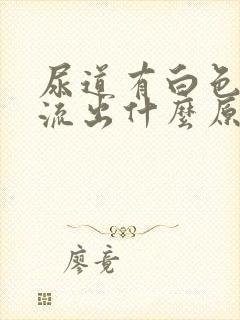 尿道有白色
流出什麼原
廖竟